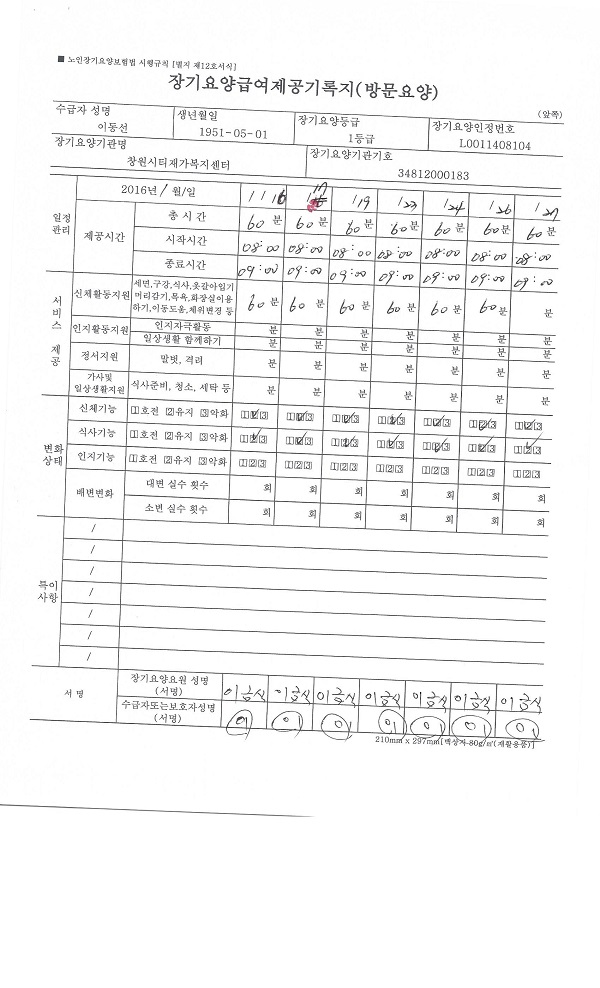 ■ 노인장기요양보험법 시행규칙 [별지 제12호서식]
장기요양급여제공기록지(방문요양)
(앞쪽)
수급자 성명 생년월일 장기요양등급 장기요양인정번호
이동선 1951-05-01 1등급 L0011408104
장기요양기관명 장기요양기관기호
창원시티재가복지센터 34812000183
일정관리 2016년/ 월/일 1/16 1/17 1/19 1/23 1/24 1/26 1/27
제공시간 총 시 간 60 분 60 분 60 분 60 분 60 분 60 분 60 분
시작시간 08:00 08:00 08:00 08:00 08:00 08:00 08:00
종료시간 09:00 09:00 09:00 09:00 09:00 09:00 09:00
서비스 제공
신체활동지원 세면,구강,식사,옷갈아입기 머리감기,목욕,화장실이용 하기,이동도움,체위변경 등 60 분 60 분 60 분 60 분 60 분 60 분 분
인지활동지원 인지자극활동 분 분 분 분 분 분 분
일상생활 함께하기 분 분 분 분 분 분 분
정서지원 말벗, 격려 분 분 분 분 분 분 분
가사및 일상생활지원 식사준비, 청소, 세탁 등 분 분 분 분 분 분 분
변화상태
신체기능 1호전 2유지 3악화 123 123 123 123 123 123 123
식사기능 1호전 2유지 3악화 123 123 123 123 123 123 123
인지기능 1호전 2유지 3악화 123 123 123 123 123 123 123
배변변화 대변 실수 횟수 회 회 회 회 회 회 회
소변 실수 횟수 회 회 회 회 회 회 회
특이사항
/
/
/
/
/
/
/
서 명
장기요양요원 성명 (서명) 이금식 이금식 이금식 이금식 이금식 이금식 이금식
수급자또는보호자성명 (서명) 이 이 이 이 이 이 이
210mm x 297mm[백상지 80g/㎡(재활용품)]